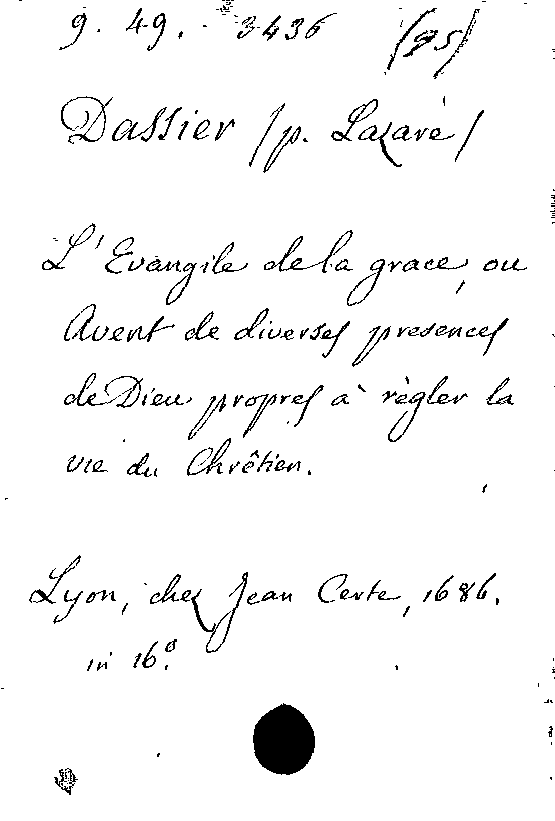 9. 49. 3436 (95)
Dassier (p. Lazare)
L'Evangile de la grace, ou
Avent de diverses presences
de Dieu propres à règler la
vie du Chrêtien.
Lyon, chez Jean Certe, 1686.
in 16º.